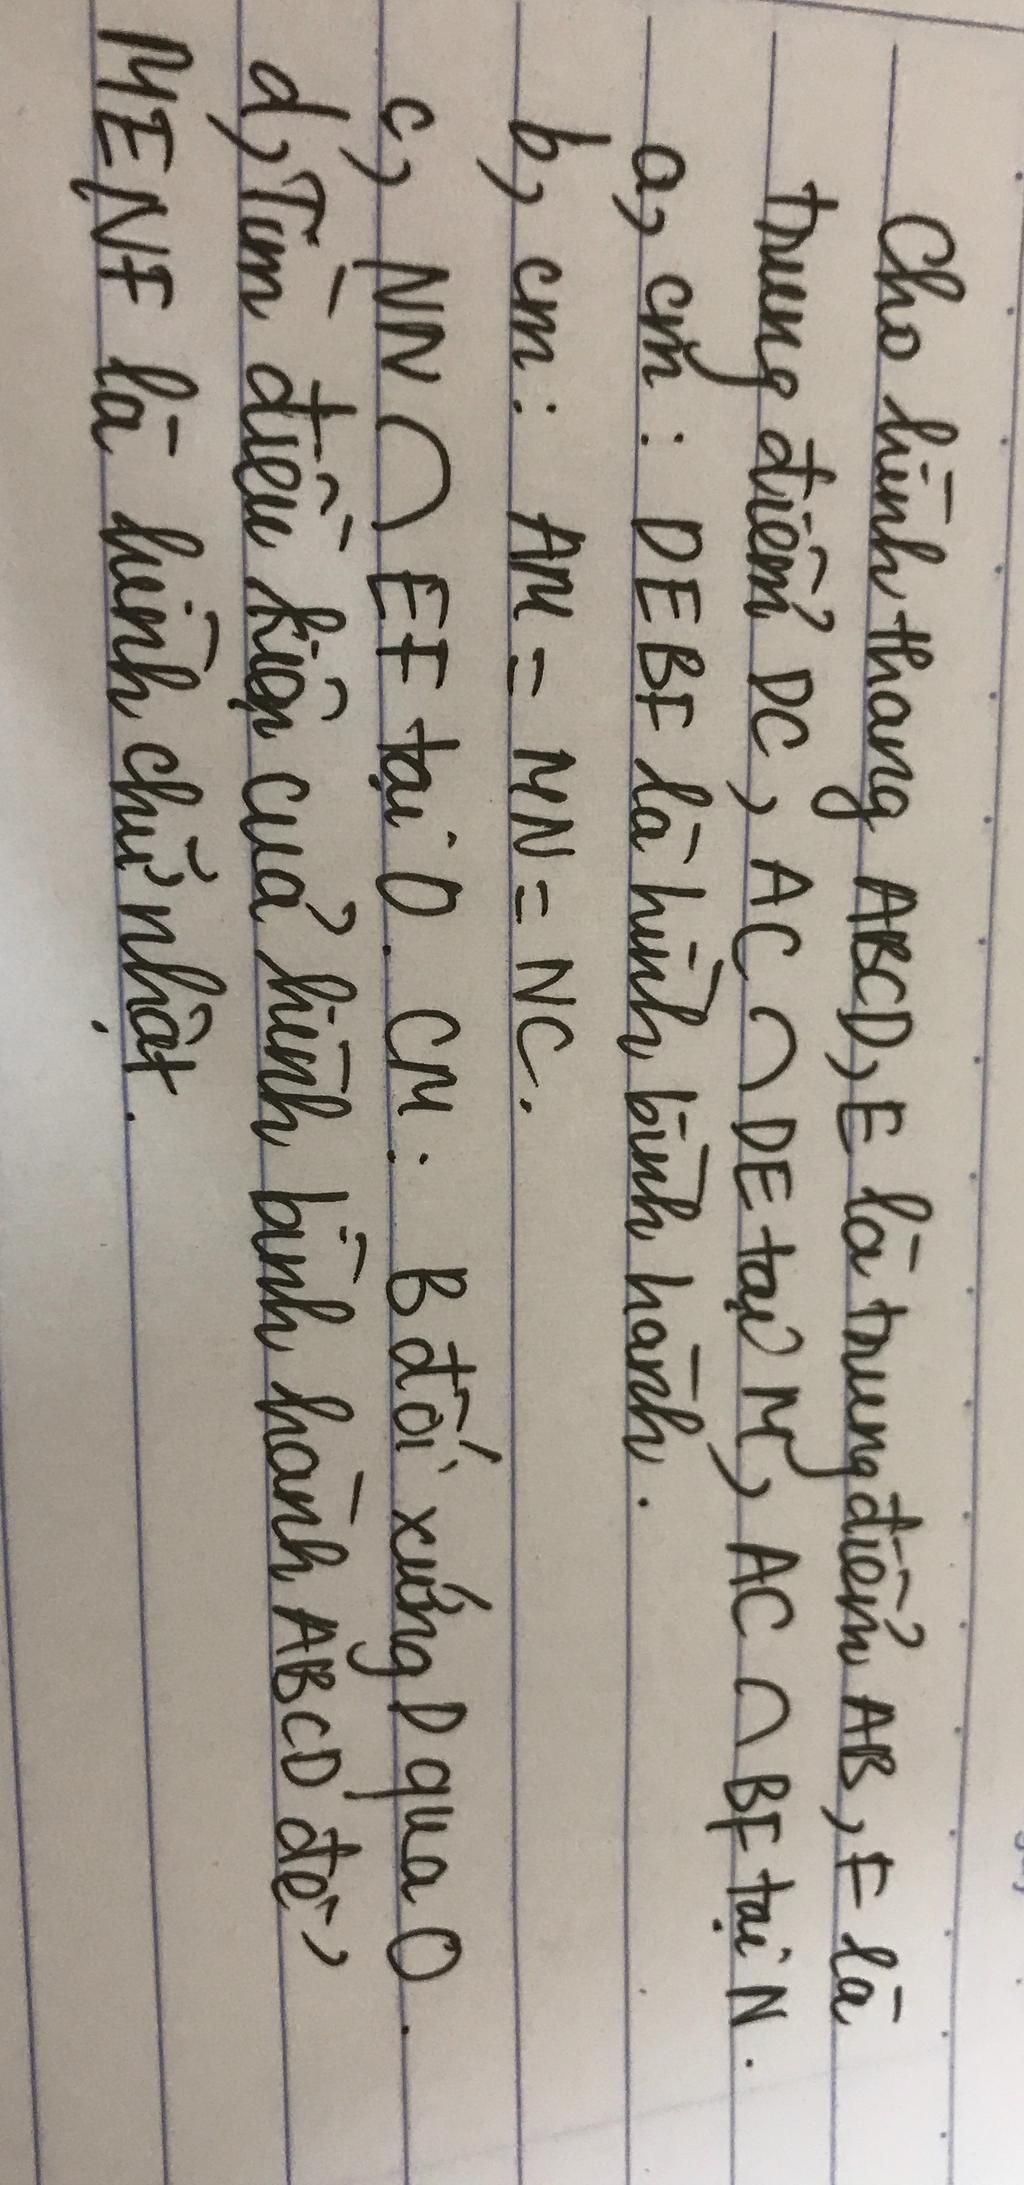 Cho hình thang ABCD, E là trung điểm AB, F là
trung điểm DC, AC ∩ DE tại M, AC ∩ BF tại N.
a, cm : DEBF là hình bình hành.
b, cm : AM = MN = NC.
c, NN ∩ EF tại O. CM : B đối xứng D qua O.
d, Tìm điều kiện của hình bình hành ABCD để
MENF là hình chữ nhật.